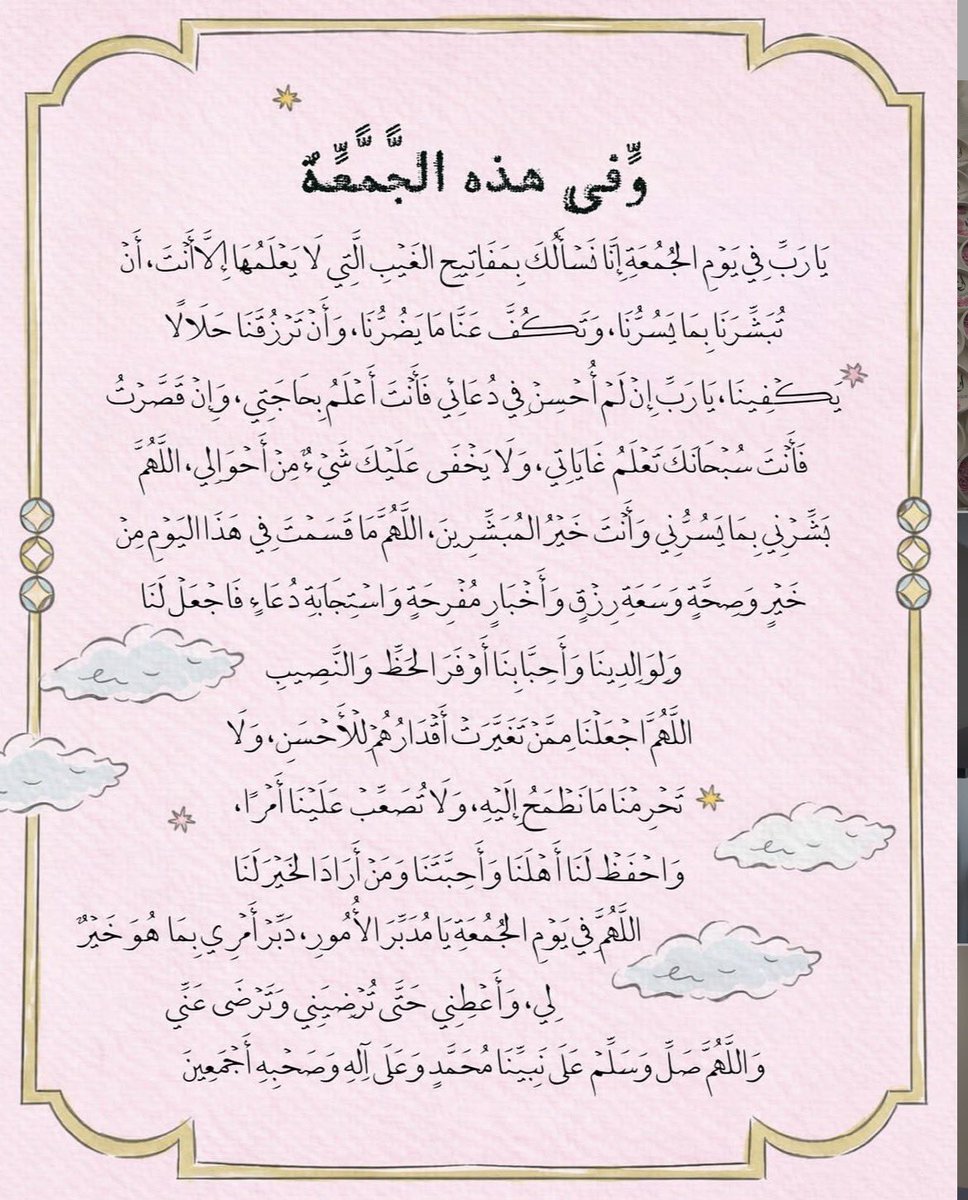 وِّفي هذه الجَّمَّعِّةٌ
يَا رَبِّ فِي يَوْمِ الجُمُعَةِ إِنَّا نَسْأَلُكَ بِمَفَاتِيحِ الغَيْبِ الَّتِي لَا يَعْلَمُهَا إِلَّا أَنْتَ، أَنْ
تُبَشِّرَنَا بِمَا يَسُرُّنَا، وَتَكُفَّ عَنَّا مَا يَضُرُّنَا، وَأَنْ تَرْزُقَنَا حَلَالًا
يَكْفِينَا، يَا رَبِّ إِنْ لَمْ أُحْسِنْ فِي دُعَائِي فَأَنْتَ أَعْلَمُ بِحَاجَتِي، وَإِنْ قَصَّرْتُ
فَأَنْتَ سُبْحَانَكَ تَعْلَمُ غَايَاتِي، وَلَا يَخْفَى عَلَيْكَ شَيْءٌ مِنْ أَحْوَالِي، اللَّهُمَّ
بَشِّرْنِي بِمَا يَسُرُّنِي وَأَنْتَ خَيْرُ المُبَشِّرِينَ، اللَّهُمَّ مَا قَسَمْتَ فِي هَذَا اليَوْمِ مِنْ
خَيْرٍ وَصِحَّةٍ وَسَعَةِ رِزْقٍ وَأَخْبَارٍ مُفْرِحَةٍ وَاسْتِجَابَةِ دُعَاءٍ فَاجْعَلْ لَنَا
وَلِوَالِدِينَا وَأَحِبَّابِنَا أَوْفَرَ الحَظِّ وَالنَّصِيبِ
اللَّهُمَّ اجْعَلْنَا مِمَّنْ تَغَيَّرَتْ أَقْدَارُهُمْ لِلْأَحْسَنِ، وَلَا
تَحْرِمْنَا مَا نَطْمَحُ إِلَيْهِ، وَلَا تُصَعِّبْ عَلَيْنَا أَمْرًا،
وَاحْفَظْ لَنَا أَهْلَنَا وَأَحِبَّتَنَا وَمَنْ أَرَادَ الخَيْرَ لَنَا
اللَّهُمَّ فِي يَوْمِ الجُمُعَةِ يَا مُدَبِّرَ الأُمُورِ، دَبِّرْ أَمْرِي بِمَا هُوَ خَيْرٌ
لِي، وَأَعْطِنِي حَتَّى تُرْضِيَنِي وَتَرْضَى عَنِّي
وَاللَّهُمَّ صَلِّ وَسَلِّمْ عَلَى نَبِيِّنَا مُحَمَّدٍ وَعَلَى آلِهِ وَصَحْبِهِ أَجْمَعِينَ